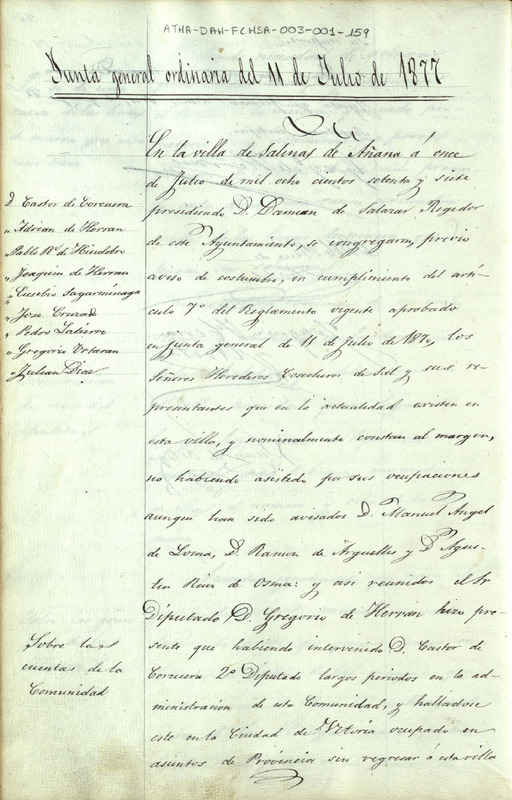 ATHA-DAH-FCHSA-003-001-159
Junta general ordinaria del 11 de Julio de 1877
En la villa de Salinas de Añana á once
de Julio de mil ocho cientos setenta y siete
presidiendo D. Damian de Salazar, Regidor
de este Ayuntamiento, se congregaron, previo
aviso de costumbre, en cumplimiento del artí-
culo 7º del Reglamento vigente aprobado
en Junta general de 11 de Julio de 1870, los
Señores Herederos Cosecheros de Sal y sus re-
presentantes que en la actualidad existen en
esta villa, y nominalmente constan al margen,
no habiendo asistido por sus ocupaciones
aunque han sido avisados D. Manuel Angel
de Loma, D. Ramon de Arguelles y D. Agus-
tin Ruiz de Osma: y asi reunidos el Sr
Diputado D. Gregorio de Herran hizo pre-
sente que habiendo intervenido D. Castor de
Corcuera 2º Diputado largos periodos en la ad-
ministracion de esta Comunidad, y hallandose
este en la Ciudad de Vitoria ocupado en
asuntos de Provincia sin regresar á esta villa
D. Castor de Corcuera
" Adrian de Herran
" Pablo de
" Joaquin de Herran
" Eusebio Sagarminaga
" Jose
" Pedro
" Gregorio Urtaran
" Julian Diaz
Sobre las
cuentas de la
Comunidad